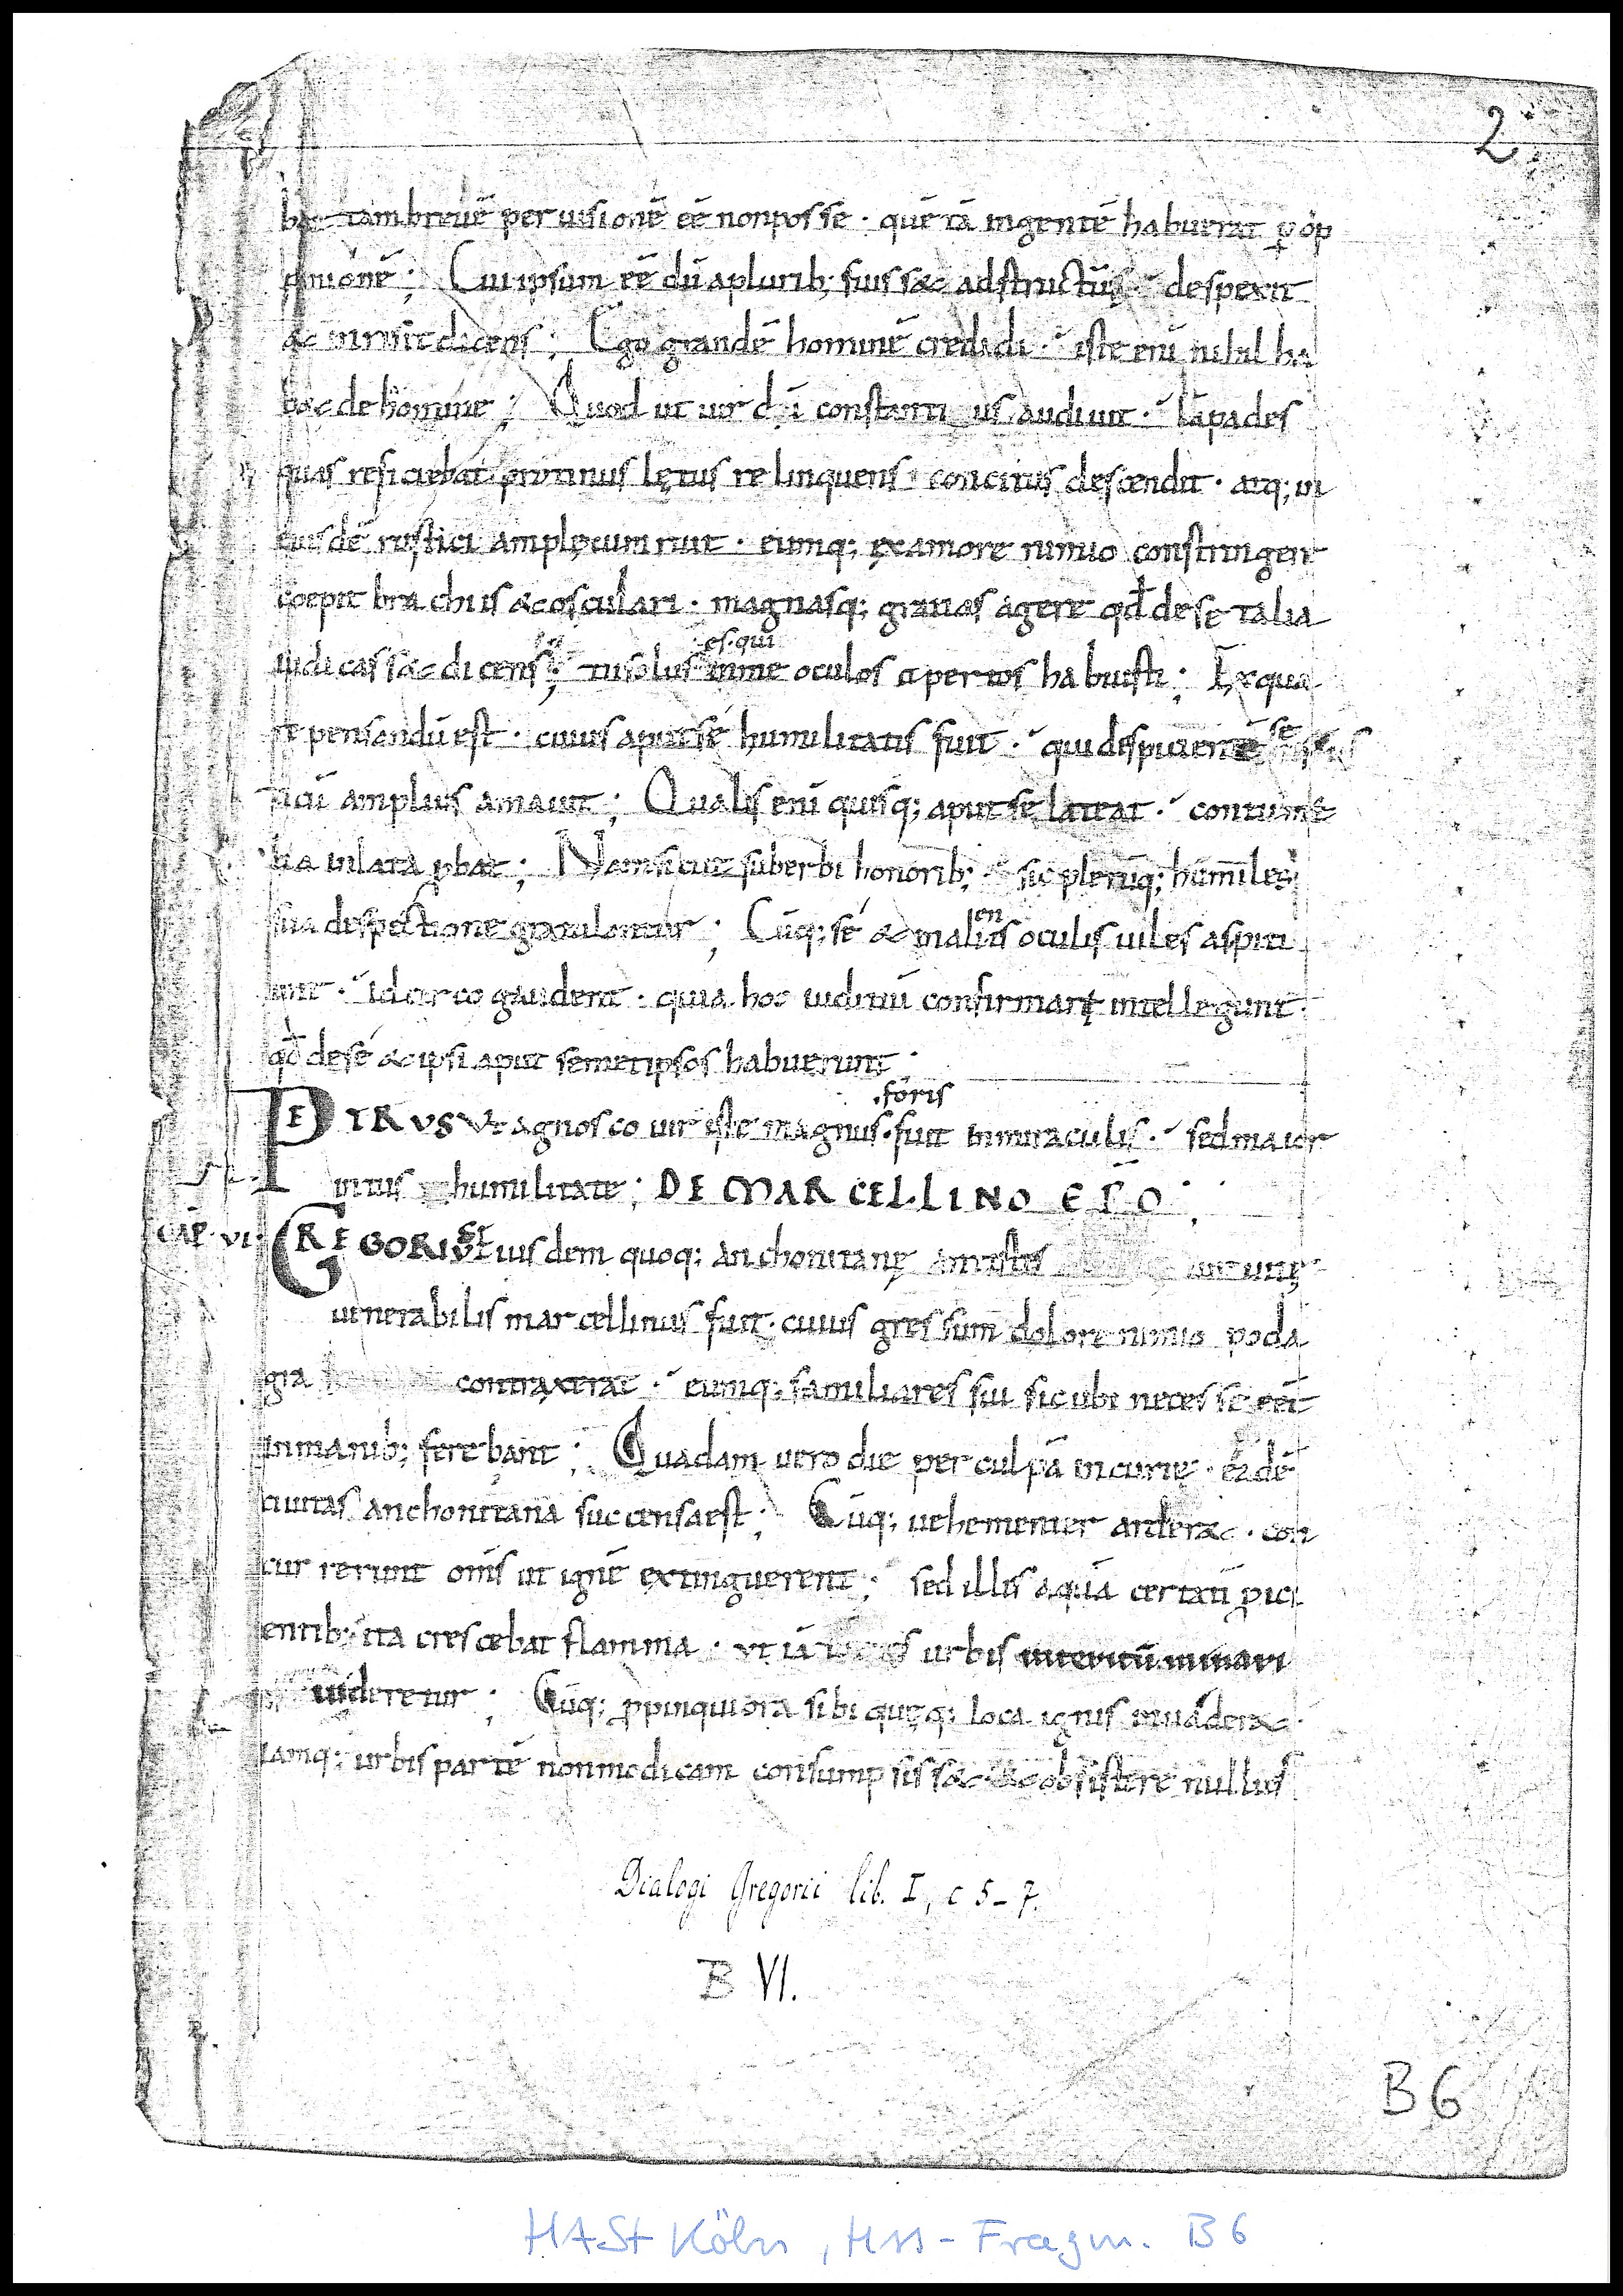 2
tambreuē per uisionē eē nonposse · quē tā ingentē habuerat ꝑ op
pinionē ; Cui ipsum eē dū a plurib; fuis&adstructū · despexit
& inrisit dicens ; Ego grandē hominē credidi · iste eni nihil ha
b& de homine ; Quod ut uir dī constantius audiuit · lāpades
quas reficiebat protinus lętus relinquens · concitus descendit · atq; in
eiusdē rustici amplęxum ruit · eumq; ex amore nimio constringere
coepit brachiis & osculari · magnasq; gratias agere qđ de se talia
iudicass& dicens ; tu solus es · qui in me oculos apertos habuisti ; Ex qua
re pensandū est · cuius aput sé humilitatis fuit · qui despicientē se
tici amplius amauit ; Qualis eni quisq; aput se lateat · contume
lia inlata ꝓbat ; Nam sicut suberbi honorib; sic plerūq; humiles
sua despectione gratulantur ; Cūq; sé & in alienis oculis uiles aspici
unt · idcirco gaudent · quia hoc iudiciū confirmarę intellegunt ·
qđ de sé & ipsi aput semetipsos habuerunt ·
PETRVS Vt agnosco uir iste magnus · foris fuit in miraculis · sed maior
intus humilitate ; DE MARCELLINO EPO ;
CAP · VI · GREGORIVS Eiusdem quoq; anchonitanę antistes
uenerabilis marcellinus fuit · cuius gressum dolore nimio poda
gra contraxerat · eumq; familiares sui sicubi necesse eēt
in manib; ferebant ; Quadam uero die per culpā incurię · eadē
ciuitas anchonitana succensa est ; Cūq; uehementer arder& · con
currerunt omīs ut ignē extinguerent ; sed illis aquā certatī ꝓici
entib; ita crescebat flamma · ut iā urbis interitū minari
uideretur ; Cūq; ꝓpinquiora sibi quęq; loca ignis inuader& ·
iamq; urbis partē non modicam consumpsiss& & obsistere nullus
Dialogi Gregorii lib. I, c 5-7.
B VI.
B 6
HASt Köln, Hss-Fragm. B 6